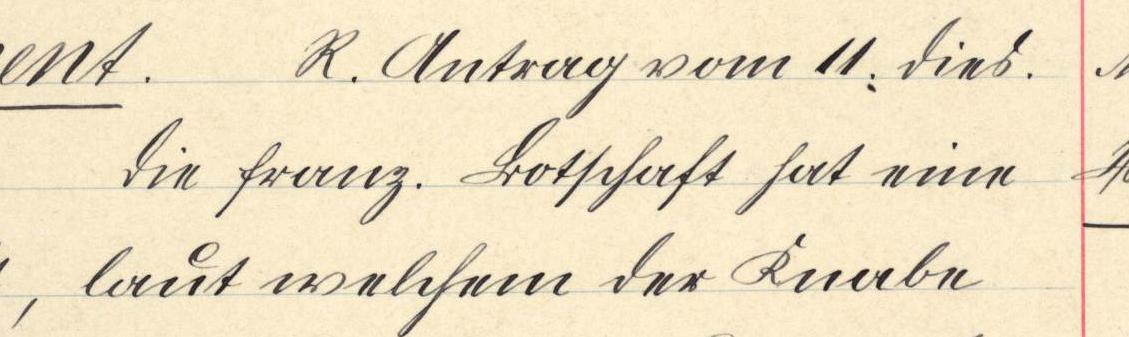 R. Antrag vom 11. dies.
die franz. Botschaft hat eine
, laut welchem der Knabe